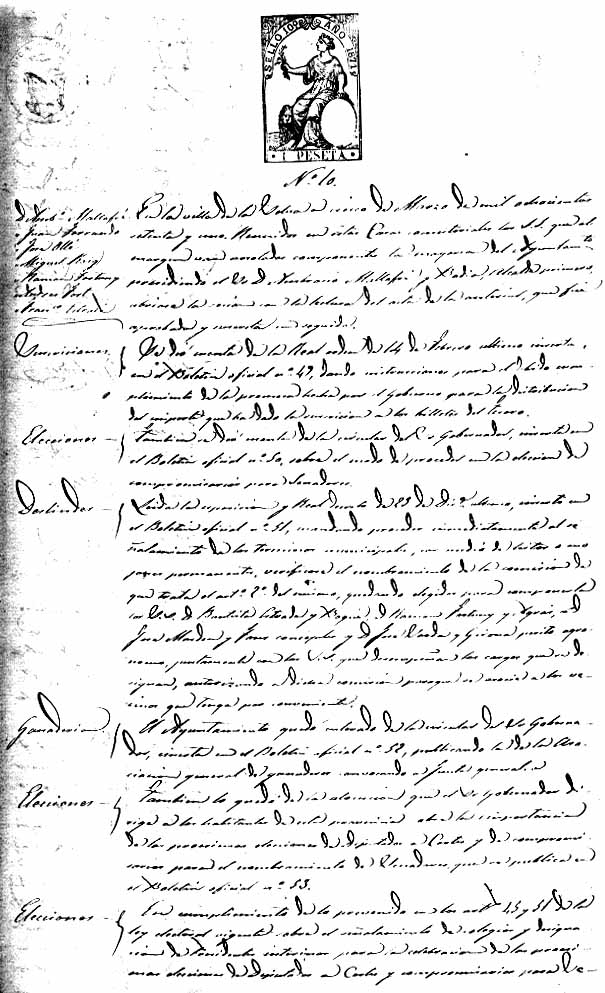 SELLO 10º AÑO 1871
1 PESETA
Nº 10.
En la villa de la a cinco de Marzo de mil ochocientos
setenta y uno. Reunidos en estas Casas consistoriales los S.S. que al
margen van anotados componentes la mayoria del Ayuntamto
presidiendo el Sr D. y Alcalde primero,
abriose la sesion con la lectura del acta de la anterior, que fué
aprobada y en seguida.
Juan
José Ollé
Miguel Roig
Ramon Fortuny
Suscriciones
Se dió cuenta de la Real orden de 14 de Febrero ultimo inserta
en el Boletin oficial nº 49, dando instrucciones para el debido cum-
plimiento de la promesa hecha por el Gobierno para la distribucion
del importe que ha dado la suscricion a los billetes del Tesoro.
Elecciones
Tambien se dió cuenta de la circular del Sr Gobernador, inserta en
el Boletin oficial nº 50, sobre el modo de proceder en la eleccion de
compromisarios para Senadores.
Deslindes
Leida la esposicion y Real Decreto de 23 de Dice ultimo, inserto en
el Boletin oficial nº 51, mandando proceder inmediatamente al se-
ñalamiento de los terminos municipales, por medio de hitos o mo-
jones permanentes, verificose el nombramiento de la comision de
que trata el artº 2º del mismo, quedando elegidos para componerla
los S.S. D. Bautista y D. Ramon Fortuny y D.
José y concejales y D. José y perito agro-
nomo, juntamente con los S.S. que desempeñan los cargos que se de-
signan, autorizando a dicha comision para que se asocie a los ve-
cinos que tenga por conveniente.
Ganaderia
El Ayuntamiento quedó enterado de la circular del Sr Goberna-
dor, inserta en el Boletin oficial nº 52, publicando la de la Aso-
ciacion general de ganaderos convocando a Junta general.
Elecciones
Tambien lo quedó de la alocucion que el Sr Gobernador di-
rige a los habitantes de esta provincia sobre la importancia
de las procsimas elecciones de diputados a Cortes y de compromi-
sarios para el nombramiento de Senadores, que se publica en
el Boletin oficial nº 53.
Elecciones
En cumplimiento de lo prevenido en los artos 45 y 51 de la
ley electoral vigente sobre el señalamiento de colegios y designa-
cion de Presidentes interinos para la celebracion de las procsi-
mas elecciones de Diputados a Cortes y compromisarios para Se-